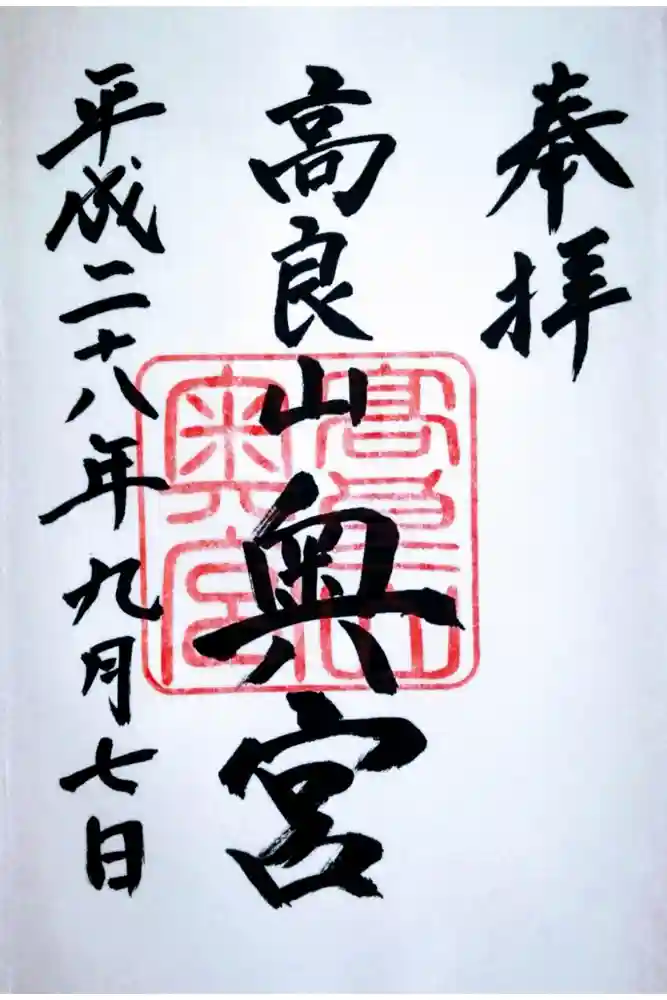 奉拝
高良山奥宮
高良山
奥宮
平成二十八年九月七日